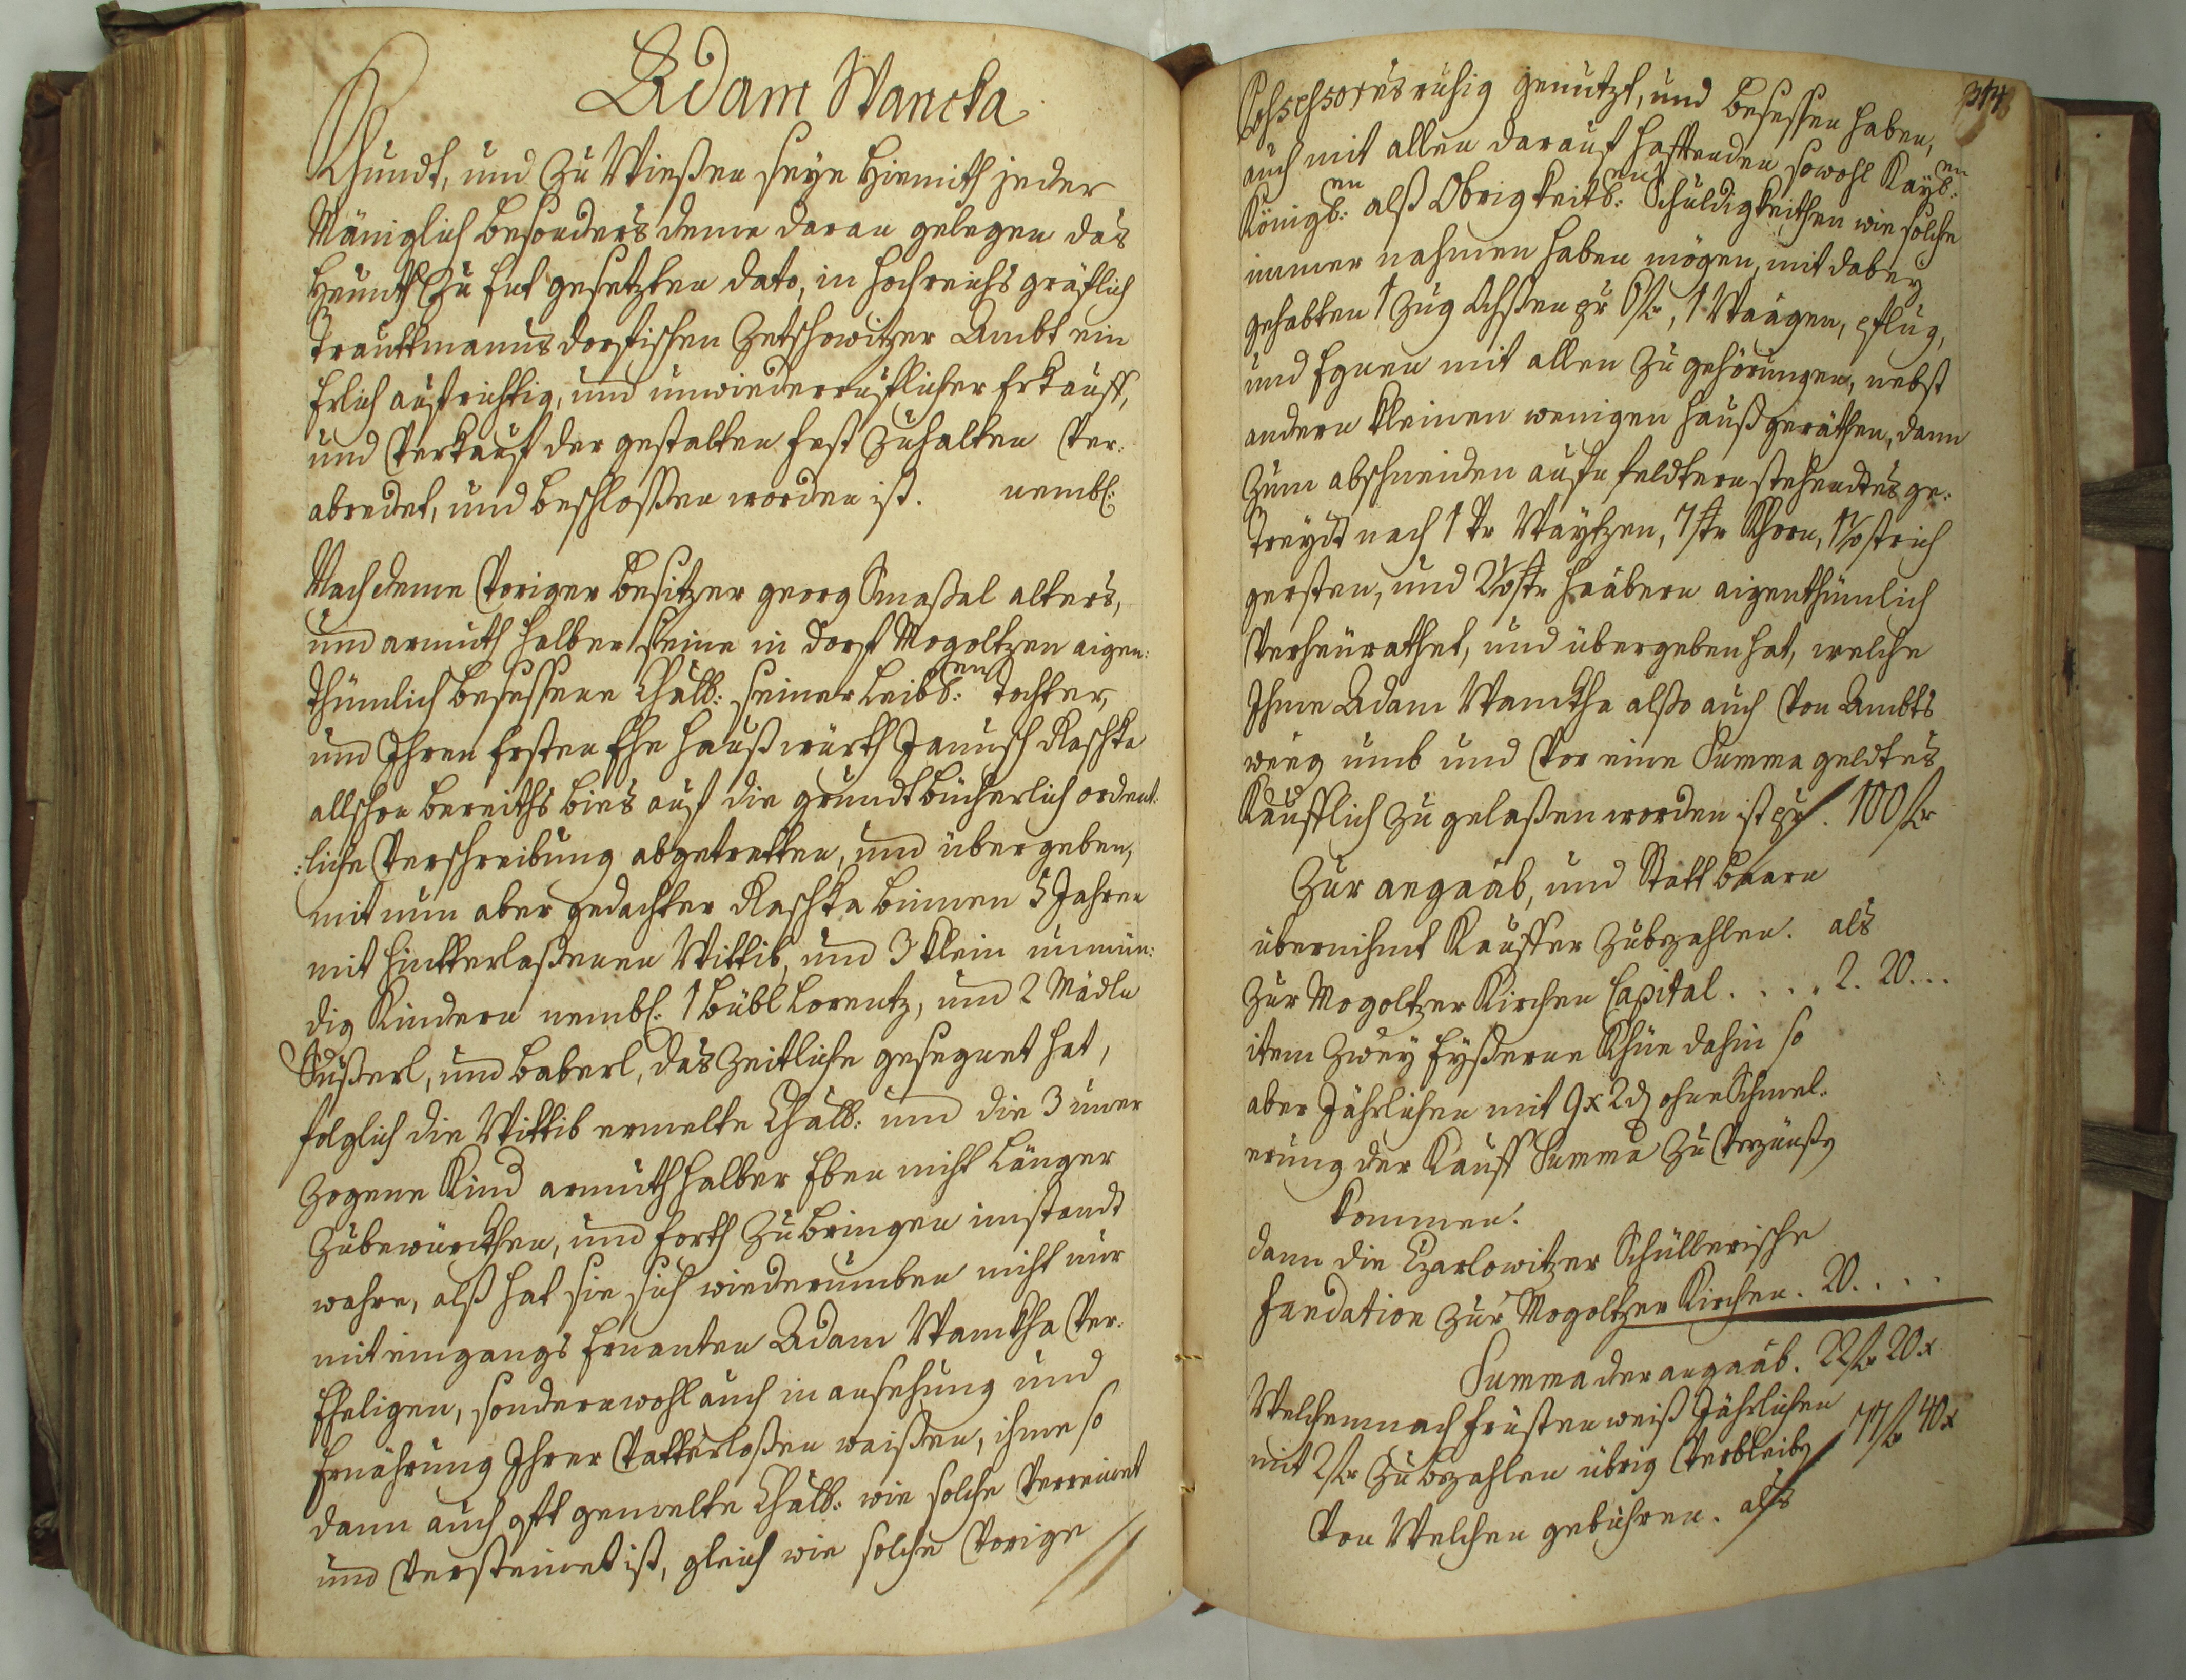 Adam Wancka
Khundt, und zu Wießen seÿe hiemith jeder
Mäniglich besonders deme daran gelegen das
heunth zu End gesetzten dato, in hochreichs gräflich
Trauttmannsdorfischen Zetschowitzer Ambt ein
Erlich aufrichtig, und unwiederruflicher Erkauff,
und Verkauf der gestalten fest zuhalten Ver:
abredet, und beschlossen worden ist. nembl:
Nachdeme Voriger besitzer georg Smaßal alters,
und armuth halber seine in dorf Mogoltzen aigen:
thümlich besessene Chalb: seiner leibl:en tochter,
und Ihren Ersten Ehe haußwürth Janusch Raschka
allschon bereiths bies auf die grundtbücherlich ordent:
:liche Verschreibung abgetretten, und übergeben,
mit nun aber gedachter Raschka binnen 5 Jahren
mit hintterlaßenen Wittib, und 3 klein unmün:
dig Kindern nembl: 1 bübl Lorentz, und 2 Mädln
Sußerl, und baberl, das Zeitliche gesegnet hat,
folglich die Wittib ermelte Chalb: und die 3 uner
zogene Kind armuth halber Eben nicht länger
zubewürthen, und forth zu bringen imstandt
wahre, alß hat sie sich wiederumben nicht nur
mit eingangs Ernanten Adam Wancka Ver:
Eheligen, sondern wohl auch in ansehung und
Ernährung Ihrer Vatterloßen waißen, ihme so
dann auch offt gemelte Chalb: wie solche Verreinet
und Versteinet ist, gleich wie solche Vorige
314
Possessores ruhig genutzt, und besessen haben,
auch mit allen darauf hafftenden sowohl Kaÿl:en
Königl:en alß Obrigkeitl:en Schuldigkeithen wie solche
immer nahmen haben mögen, mit dabeÿ
gehabten 1 Zug Ochßen pr 6 fl, 1 Waagen, pflug,
und Egnen mit allen zu gehörungen, nebst
andern kleinen wenigen haußgeräthen, dann
zum abschneiden aufn feldtern stehendtes ge:
treÿdt nach 1 str Waÿtzen, 7 str Khorn, 1½ strich
gersten, und 2½ str haabern aigenthümlich
Verheurathet, und übergeben hat, welche
Ihme Adam Wancka alßo auch Von Ambts
weeg umb und Vor eine Summa geldtes
Kaufflich zu gelaßen worden ist pr. 100 fl
Zur angaab, und Statt baarn
übernihmt Kauffer zubezahlen. als
zur Mogoltzer Kirchen Capital . . . . 2. 20 . . .
item zweÿ Eÿßerne Khüe dahin so
aber Jährlichen mit 9 x 2 d ohne Schmel:
erung der Kauff Summa zu Verzünßen
kommen.
dann die Czarlowitzer Schüllerische
fundation zur Mogoltzer Kirchen. 20. . . .
Summa der angaab. 22 fl 20 x
Welchemnach fristenweiß Jährlichen
mit 2 fl zu bezahlen übrig Verbleiben 77 fl 40 x
Von Welchen gebühren. als